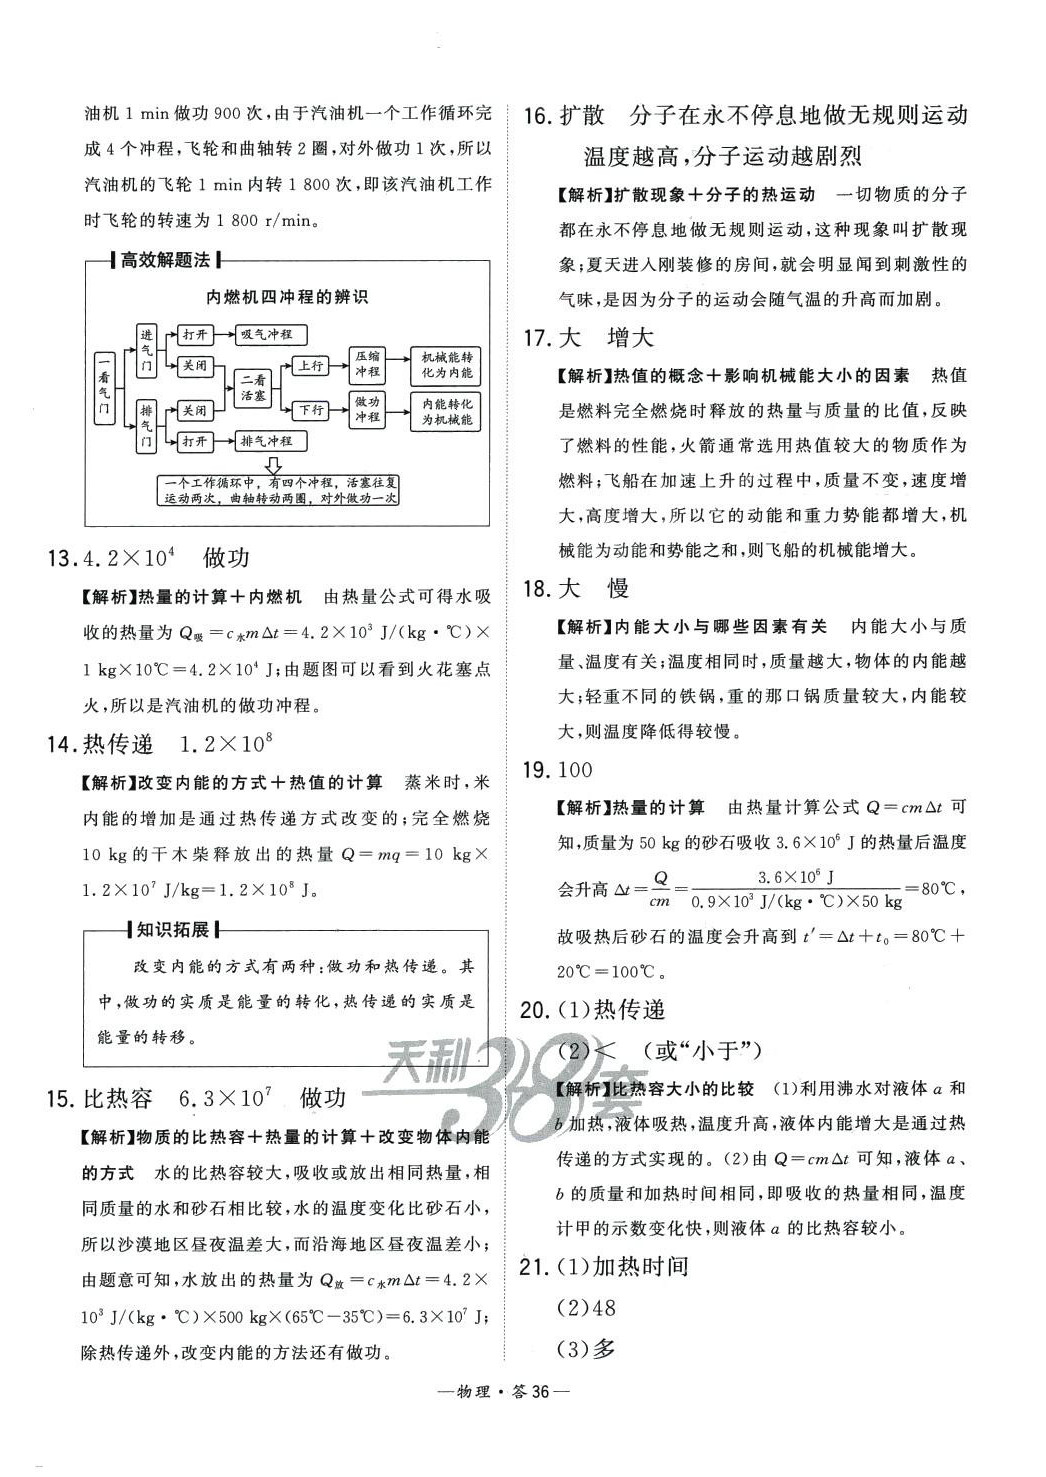 油机 1 min 做功 900 次,由于汽油机一个工作循环完
成 4 个冲程,飞轮和曲轴转 2 圈,对外做功 1 次,所以
汽油机的飞轮 1 min 内转 1 800 次,即该汽油机工作
时飞轮的转速为 1 800 r/min。
高效解题法
内燃机四冲程的辨识
一看气门
进气门
打开
吸气冲程
关闭
排气门
关闭
打开
排气冲程
二看活塞
上行
压缩冲程
机械能转化为内能
下行
做功冲程
内能转化为机械能
一个工作循环中，有四个冲程，活塞往复
运动两次，曲轴转动两圈，对外做功一次
13.4.2×10⁴ 做功
【解析】热量的计算＋内燃机 由热量公式可得水吸
收的热量为 Q吸＝c水m△t＝4.2×10³ J/(kg·℃)×
1 kg×10℃＝4.2×10⁴ J;由题图可以看到火花塞点
火,所以是汽油机的做功冲程。
14.热传递 1.2×10⁸
【解析】改变内能的方式＋热值的计算 蒸米时,米
内能的增加是通过热传递方式改变的;完全燃烧
10 kg 的干木柴释放出的热量 Q＝mq＝10 kg×
1.2×10⁷ J/kg＝1.2×10⁸ J。
知识拓展
改变内能的方式有两种:做功和热传递。其
中,做功的实质是能量的转化,热传递的实质是
能量的转移。
15.比热容 6.3×10⁷ 做功
【解析】物质的比热容＋热量的计算＋改变物体内能
的方式 水的比热容较大,吸收或放出相同热量,相
同质量的水和砂石相比较,水的温度变化比砂石小,
所以沙漠地区昼夜温差大,而沿海地区昼夜温差小;
由题意可知,水放出的热量为 Q放＝c水m△t＝4.2×
10³ J/(kg·℃)×500 kg×(65℃－35℃)＝6.3×10⁷ J;
除热传递外,改变内能的方法还有做功。
16.扩散 分子在永不停息地做无规则运动
温度越高,分子运动越剧烈
【解析】扩散现象＋分子的热运动 一切物质的分子
都在永不停息地做无规则运动,这种现象叫扩散现
象;夏天进入刚装修的房间,就会明显闻到刺激性的
气味,是因为分子的运动会随气温的升高而加剧。
17.大 增大
【解析】热值的概念＋影响机械能大小的因素 热值
是燃料完全燃烧时释放的热量与质量的比值,反映
了燃料的性能,火箭通常选用热值较大的物质作为
燃料;飞船在加速上升的过程中,质量不变,速度增
大,高度增大,所以它的动能和重力势能都增大,机
械能为动能和势能之和,则飞船的机械能增大。
18.大 慢
【解析】内能大小与哪些因素有关 内能大小与质
量、温度有关;温度相同时,质量越大,物体的内能越
大;轻重不同的铁锅,重的那口锅质量较大,内能较
大,则温度降低得较慢。
19.100
【解析】热量的计算 由热量计算公式 Q＝cm△t 可
知,质量为 50 kg 的砂石吸收 3.6×10⁶ J 的热量后温度
会升高 △t＝Q/cm＝3.6×10⁶ J/0.9×10³ J/(kg·℃)×50 kg＝80℃,
故吸热后砂石的温度会升高到 t′＝△t＋t₀＝80℃＋
20℃＝100℃。
20.(1)热传递
(2)＜ (或“小于”)
【解析】比热容大小的比较 (1)利用沸水对液体 a 和
b 加热,液体吸热,温度升高,液体内能增大是通过热
传递的方式实现的。(2)由 Q＝cm△t 可知,液体 a、
b 的质量和加热时间相同,即吸收的热量相同,温度
计甲的示数变化快,则液体 a 的比热容较小。
21.(1)加热时间
(2)48
(3)多
天利38套
—物理·答36—